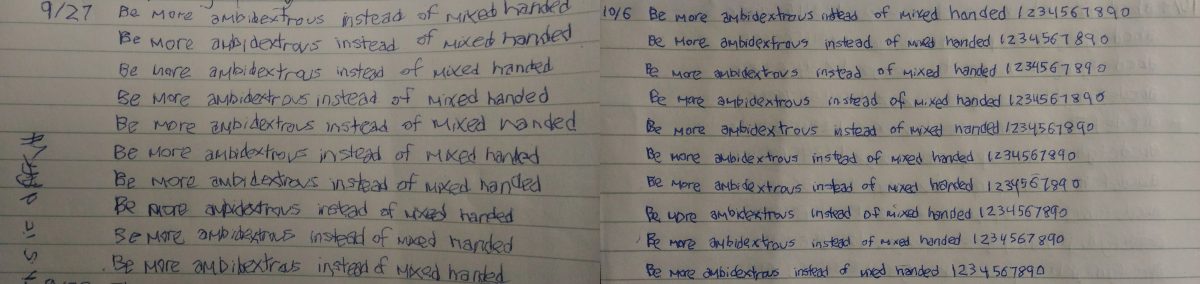 9/27 Be More ambidextrous instead of Mixed handed
Be More ambidextrous instead of Mixed handed
Be More ambidextrous instead of Mixed handed
Be More ambidextrous instead of Mixed handed
Be More ambidextrous instead of Mixed handed
Be More ambidextrous instead of Mixed handed
Be More ambidextrous instead of Mixed handed
Be more ambidextrous instead of Mixed handed
Be More ambidextrous instead of Mixed handed
Be More ambibextrous instead of Mixed handed
10/6 Be More ambidextrous instead of mixed handed 1234567890
Be More ambidextrous instead of mixed handed 1234567890
Be More ambidextrous instead of mixed handed 1234567890
Be More ambidextrous instead of mixed handed 1234567890
Be More ambidextrous instead of mixed handed 1234567890
Be more ambidextrous instead of mixed handed 1234567890
Be More ambidextrous instead of mixed handed 1234567890
Be more ambidextrous instead of mixed handed 1234567890
Be more ambidextrous instead of mixed handed 1234567890
Be More ambidextrous instead of mixed handed 1234567890